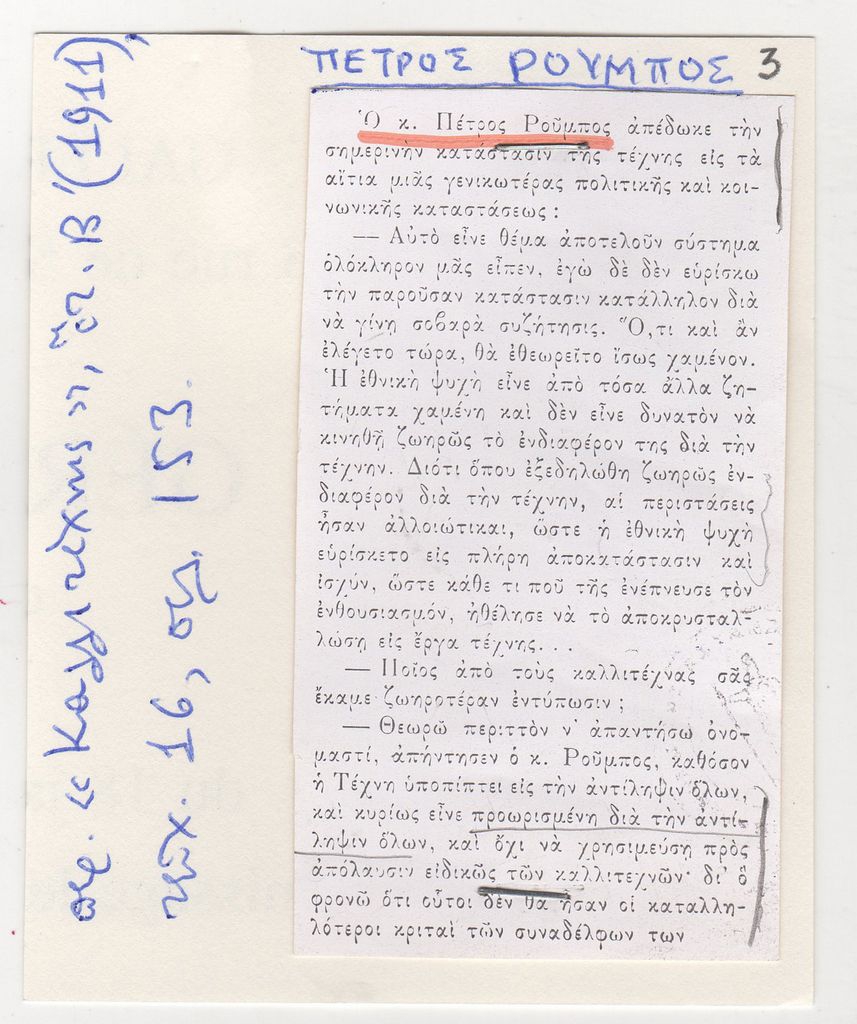 ΠΕΤΡΟΣ ΡΟΥΜΠΟΣ 3
Ὁ κ. Πέτρος Ροῦμπος ἀπέδωκε τὴν
σημερινὴν κατάστασιν τῆς τέχνης εἰς τὰ
αἴτια μιᾶς γενικωτέρας πολιτικῆς καὶ κοι-
νωνικῆς καταστάσεως :
— Αὐτὸ εἶνε θέμα ἀποτελοῦν σύστημα
ὁλόκληρον μᾶς εἶπεν, ἐγὼ δὲ δὲν εὑρίσκω
τὴν παροῦσαν κατάστασιν κατάλληλον διὰ
νὰ γίνῃ σοβαρὰ συζήτησις. Ὅ,τι καὶ ἂν
ἐλέγετο τώρα, θὰ ἐθεωρεῖτο ἴσως χαμένον.
Ἡ ἐθνικὴ ψυχὴ εἶνε ἀπὸ τόσα ἄλλα ζη-
τήματα χαμένη καὶ δὲν εἶνε δυνατὸν νὰ
κινηθῇ ζωηρῶς τὸ ἐνδιαφέρον της διὰ τὴν
τέχνην. Διότι ὅπου ἐξεδηλώθη ζωηρῶς ἐν-
διαφέρον διὰ τὴν τέχνην, αἱ περιστάσεις
ἦσαν ἀλλοιώτικαι, ὥστε ἡ ἐθνικὴ ψυχὴ
εὑρίσκετο εἰς πλήρη ἀποκατάστασιν καὶ
ἰσχύν, ὥστε κάθε τι ποῦ τῆς ἐνέπνευσε τὸν
ἐνθουσιασμόν, ἠθέλησε νὰ τὸ ἀποκρυσταλ-
λώσῃ εἰς ἔργα τέχνης. . .
— Ποῖος ἀπὸ τοὺς καλλιτέχνας σᾶς
ἔκαμε ζωηροτέραν ἐντύπωσιν ;
— Θεωρῶ περιττὸν ν' ἀπαντήσω ὀνο-
μαστί, ἀπήντησεν ὁ κ. Ροῦμπος, καθόσον
ἡ Τέχνη ὑποπίπτει εἰς τὴν ἀντίληψιν ὅλων,
καὶ κυρίως εἶνε προωρισμένη διὰ τὴν ἀντί-
ληψιν ὅλων, καὶ ὄχι νὰ χρησιμεύσῃ πρὸς
ἀπόλαυσιν εἰδικῶς τῶν καλλιτεχνῶν· δι' ὃ
φρονῶ ὅτι οὗτοι δὲν θὰ ἦσαν οἱ καταλλη-
λότεροι κριταὶ τῶν συναδέλφων των
περ. «Καλλιτέχνης», ἔτ. Β΄ (1911),
τεῦχ. 16, σελ. 153.